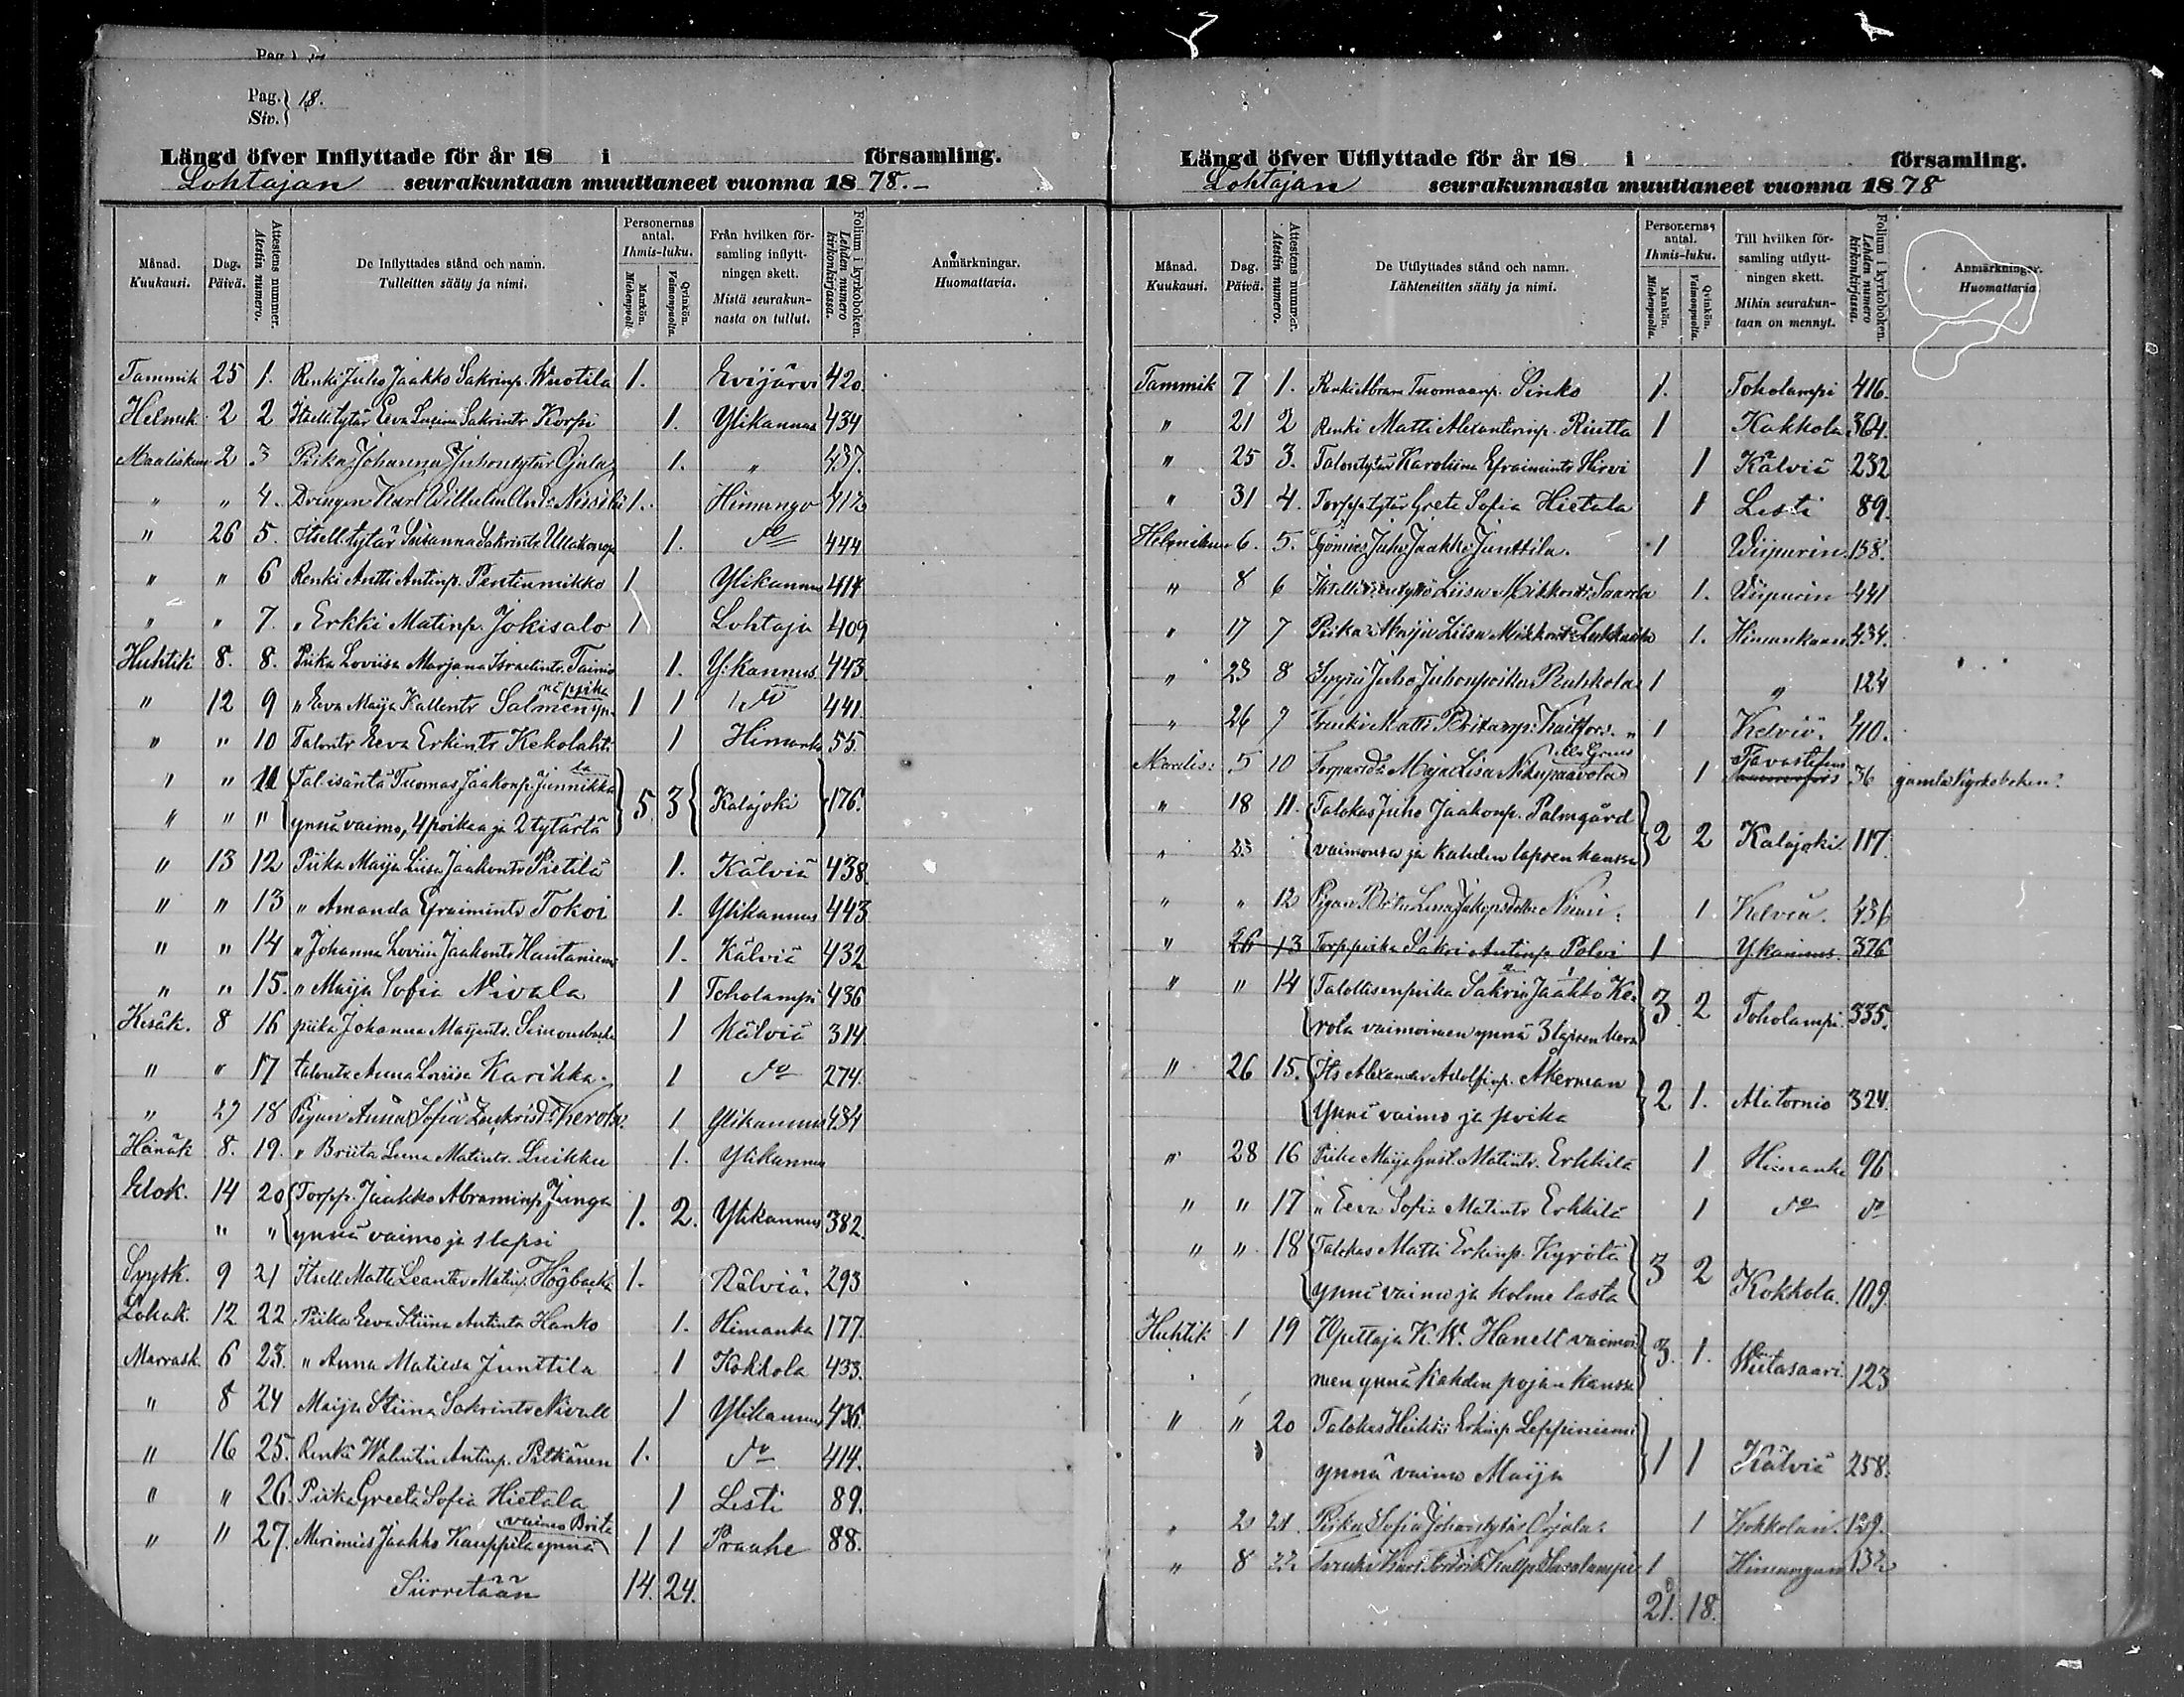 Pag. 18.
Siv.
Längd öfver Inflyttade för år 18 i församling.
Lohtajan seurakuntaan muuttaneet vuonna 1878.-
Månad. Kuukausi.
Dag. Päivä.
Attestens nummer. Atestin numero.
De Inflyttades stånd och namn. Tulleitten sääty ja nimi.
Personernas antal. Ihmis-luku.
Mankön. Miehenpuoli.
Qvinkön. Vaimonpuolta.
Från hvilken församling inflyttningen skett. Mistä seurakunnasta on tullut.
Folium i kyrkoboken. Lehden numero kirkonkirjassa.
Anmärkningar. Huomattavia.
Tammik 25 1. Renki Juho Jaakko Sakrinp. Wuotila 1. Evijärvi 420.
Helmik 2 2 Itsell. tytär Eeva Sakrintr Korpi 1. Ylikannus 434
Maalisku 2 3 Piika Johanna Juhontytär Ojala 1. " 437.
" " 4. Drängen Karl Wilhelm And: 1. Himango 412
" 26 5. Itsell tytär Susanna Sakrintr 1. do 444
" " 6 Renki Antti Antinp. Penttinmikko 1 Ylikannus 414
" " 7. " Erkki Matinp. Jokisalo 1 Lohtaja 409
Huhtik 8. 8. Piika Loviisa Marjana Israelintr. Tainio 1. Y:kannus. 443.
" 12 9 " Eva Maija Kallentr Salmen yn- nä poika 1 1 do 441.
" " 10 Talontr Eeva Erkintr Kekolahti 1 Himanka 55.
" " 11 Tal-isäntä Tuomas Jaakonp. Junnikkala
" " " ynnä vaimo, 4 poikaa ja 2 tytärtä 5. 3 Kalajoki 176.
" 13 12 Piika Maija Liisa Jaakontr Pietilä 1. Kälviä 438.
" " 13 " Amanda Efraimintr Tokoi 1. Ylikannus 443
" " 14 " Johanna Loviisa Jaakontr Hautaniemi 1. Kälviä 432
" " 15. " Maija Sofia Nivala 1 Toholampi 436
Kesäk. 8 16 piika Johanna Majantr. Simonsbacka 1 Kälviä 314
" " 17 talontr Anna Loviisa Karhikka. 1 do 274.
" 27 18 Pigan Anna Sofia Zackrisd: Kerola. 1 Ylikannus 434
Heinäk 8. 19. " Briita Leena Matintr. Luikku 1. Ylikannus
Elok. 14 20 Torpp. Jaakko Abraminp. Junga
" " ynnä vaimo ja 1 lapsi 1. 2. Ylikannus 382.
Syysk. 9 21 Itsell. Matti Leander Matinp. Högbacka 1. Kälviä. 293
Lokak. 12 22 Piika Eeva Stiina Antintr Hanko 1. Himanka 177.
Marrask. 6 23. " Anna Matilda Junttila 1 Kokkola 433.
" 8 24 Maija Stiina Sakrintr Nivall 1 Ylikannus 436.
" 16 25. Renki Walentin Antinp. Pitkänen 1. do 414.
" " 26. Piika Greeta Sofia Hietala 1 Lesti 89.
" " 27. Merimies Jaakko Kauppila ynnä vaimo Brita 1 1 Praahe 88.
Siirretään 14. 24.
Längd öfver Utflyttade för år 18 i församling.
Lohtajan seurakunnasta muuttaneet vuonna 1878
Månad. Kuukausi.
Dag. Päivä.
Attestens nummer. Atestin numero.
De Utflyttades stånd och namn. Lähteneitten sääty ja nimi.
Personernas antal. Ihmis-luku.
Mankön. Miehenpuolta.
Qvinkön. Vaimonpuolta.
Till hvilken församling utflyttningen skett. Mihin seurakuntaan on mennyt.
Folium i kyrkoboken. Lehden numero kirkonkirjassa.
Anmärkningar. Huomattavia
Tammik 7 1. Renki Abram Tuomaanp. Sinko 1. Toholampi 416.
" 21 2 Renki Matti Alexanterinp. Riutta 1 Kokkola 364.
" 25 3. Talontytär Karoliina Efraimintr Hirvi 1 Kälviä 232
" 31 4. Torpp. tytär Greta Sofia Hietala 1 Lesti 89.
Helmikuu 6. 5. Työmies Juho Jaakko Junttila. 1 Wiipurin 158.
" 8 6 Liisa Mikkontr. Saarela 1. Wiipurin 441
" 17 7 Piika Maija Liisa Mikkontr. 1. Himankaan 434.
" 23 8 Juho Juhonpoika Ruhkola 1 " 124
" 26 9 Renki Matti 1 Kelviö. 410.
Maalis: 5 10 Maja Lisa 1 Tavastehus 36 gamla kyrkoboken.
" 18 11. Talokas Juho Jaakonp. Palmgård
" 23 vaimonsa ja kahden lapsen kanssa 2 2 Kalajoki. 117.
" " 12 Pigan Brita Lena Jakopsdotter Niemi. 1. Kelviä. 436
" 26 13 Torp. poika Sakri Antinp. Polvi 1 Y.kannus. 376
" " 14 Talollisenpoika Sakris Jaakko Ke-
rola vaimoineen ynnä 3 lapsen kera 3. 2 Toholampi. 335.
" 26 15. Its Alexander Adolfinp. Åkerman
Ynnä vaimo ja poika 2 1. Alatornio 324.
" 28 16 Piika Maija Gust. Matintr. Erkkilä 1 Himanka 96.
" " 17 " Eeva Sofia Matintr Erkkilä 1 do do
" " 18 Talokas Matti Erkinp. Kyrölä
ynnä vaimo ja kolme lasta 3 2 Kokkola. 109.
Huhtik 1 19 Opettaja K. W. Hanell vaimoi-
neen ynnä kahden pojan kanssa 3. 1. Wiitasaari. 123
" " 20 Talokas Heikki Erkinp. Leppiniemi
ynnä vaimo Maija 1 1 Kälviä 258.
" 2 21. Piika Sofia Johantytär Ojala. 1 Kokkolan. 129.
" 8 22 1 Himangan 132
21. 18.